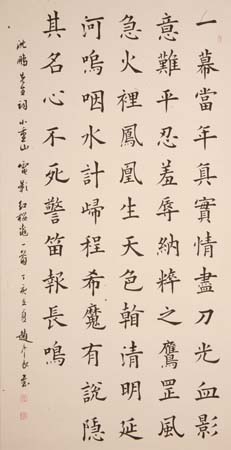 一幕當年真實情盡刀光血影
意難平忍羞辱納粹之鷹罡風
急火裡鳳凰生天色翰清明延
河嗚咽水計歸程希魔有說隱
其名心不死警笛報長鳴
沈鵬先生詞小重山電影紅櫻桃一首丁亥